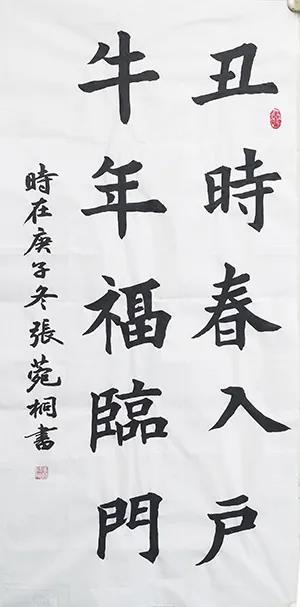 丑時春入戶
牛年福臨門
時在庚子冬張菀桐書